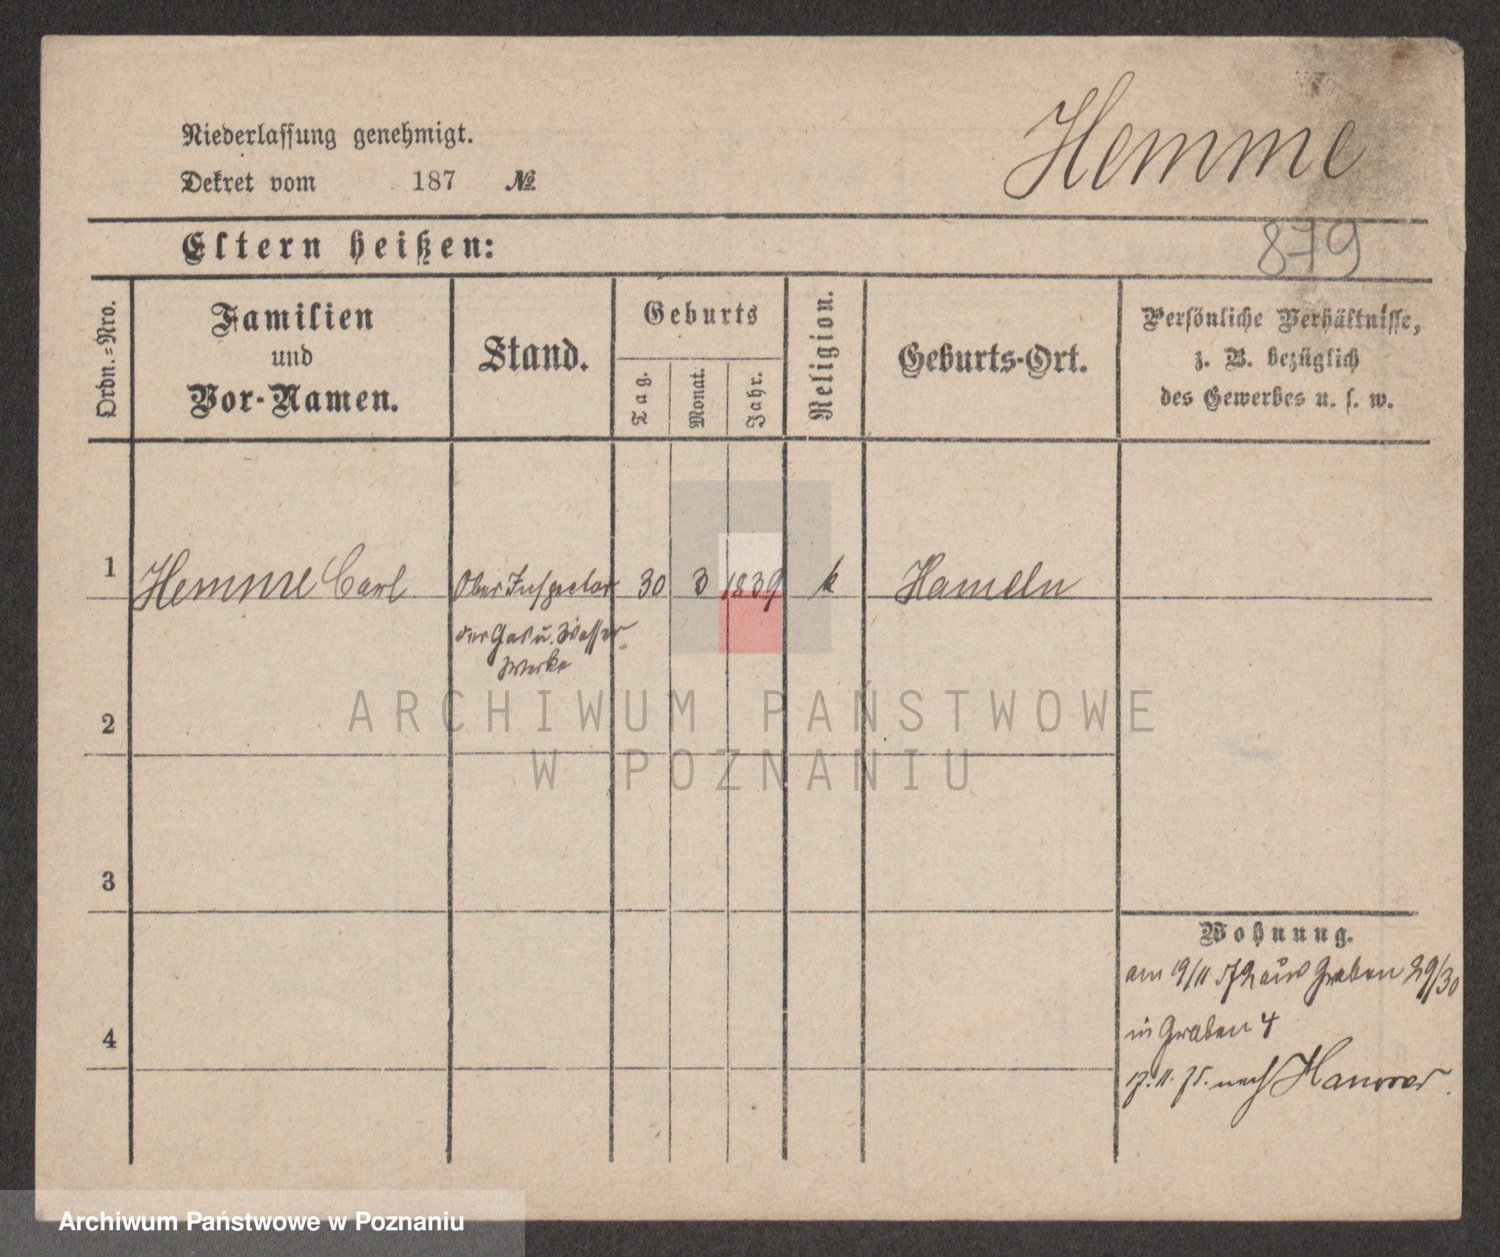 Hemme
Niederlassung genehmigt.
Dekret vom 187 №
879
Eltern heißen:
Ordn.=Nro.
Familien
und
Vor-Namen.
Stand.
Geburts
Tag.
Monat.
Jahr.
Religion.
Geburts-Ort.
Persönliche Verhältnisse,
z. B. bezüglich
des Gewerbes u. s. w.
1 Hemme Carl Ober Inspector 30 3 1839 k Hameln
der Gas u. Wasser
Werke
ARCHIWUM PAŃSTWOWE
W POZNANIU
2
3
4
Wohnung.
am 19/11 72 aus Graben 29/30
in Graben 4
11. 75. nach Hanover
Archiwum Państwowe w Poznaniu